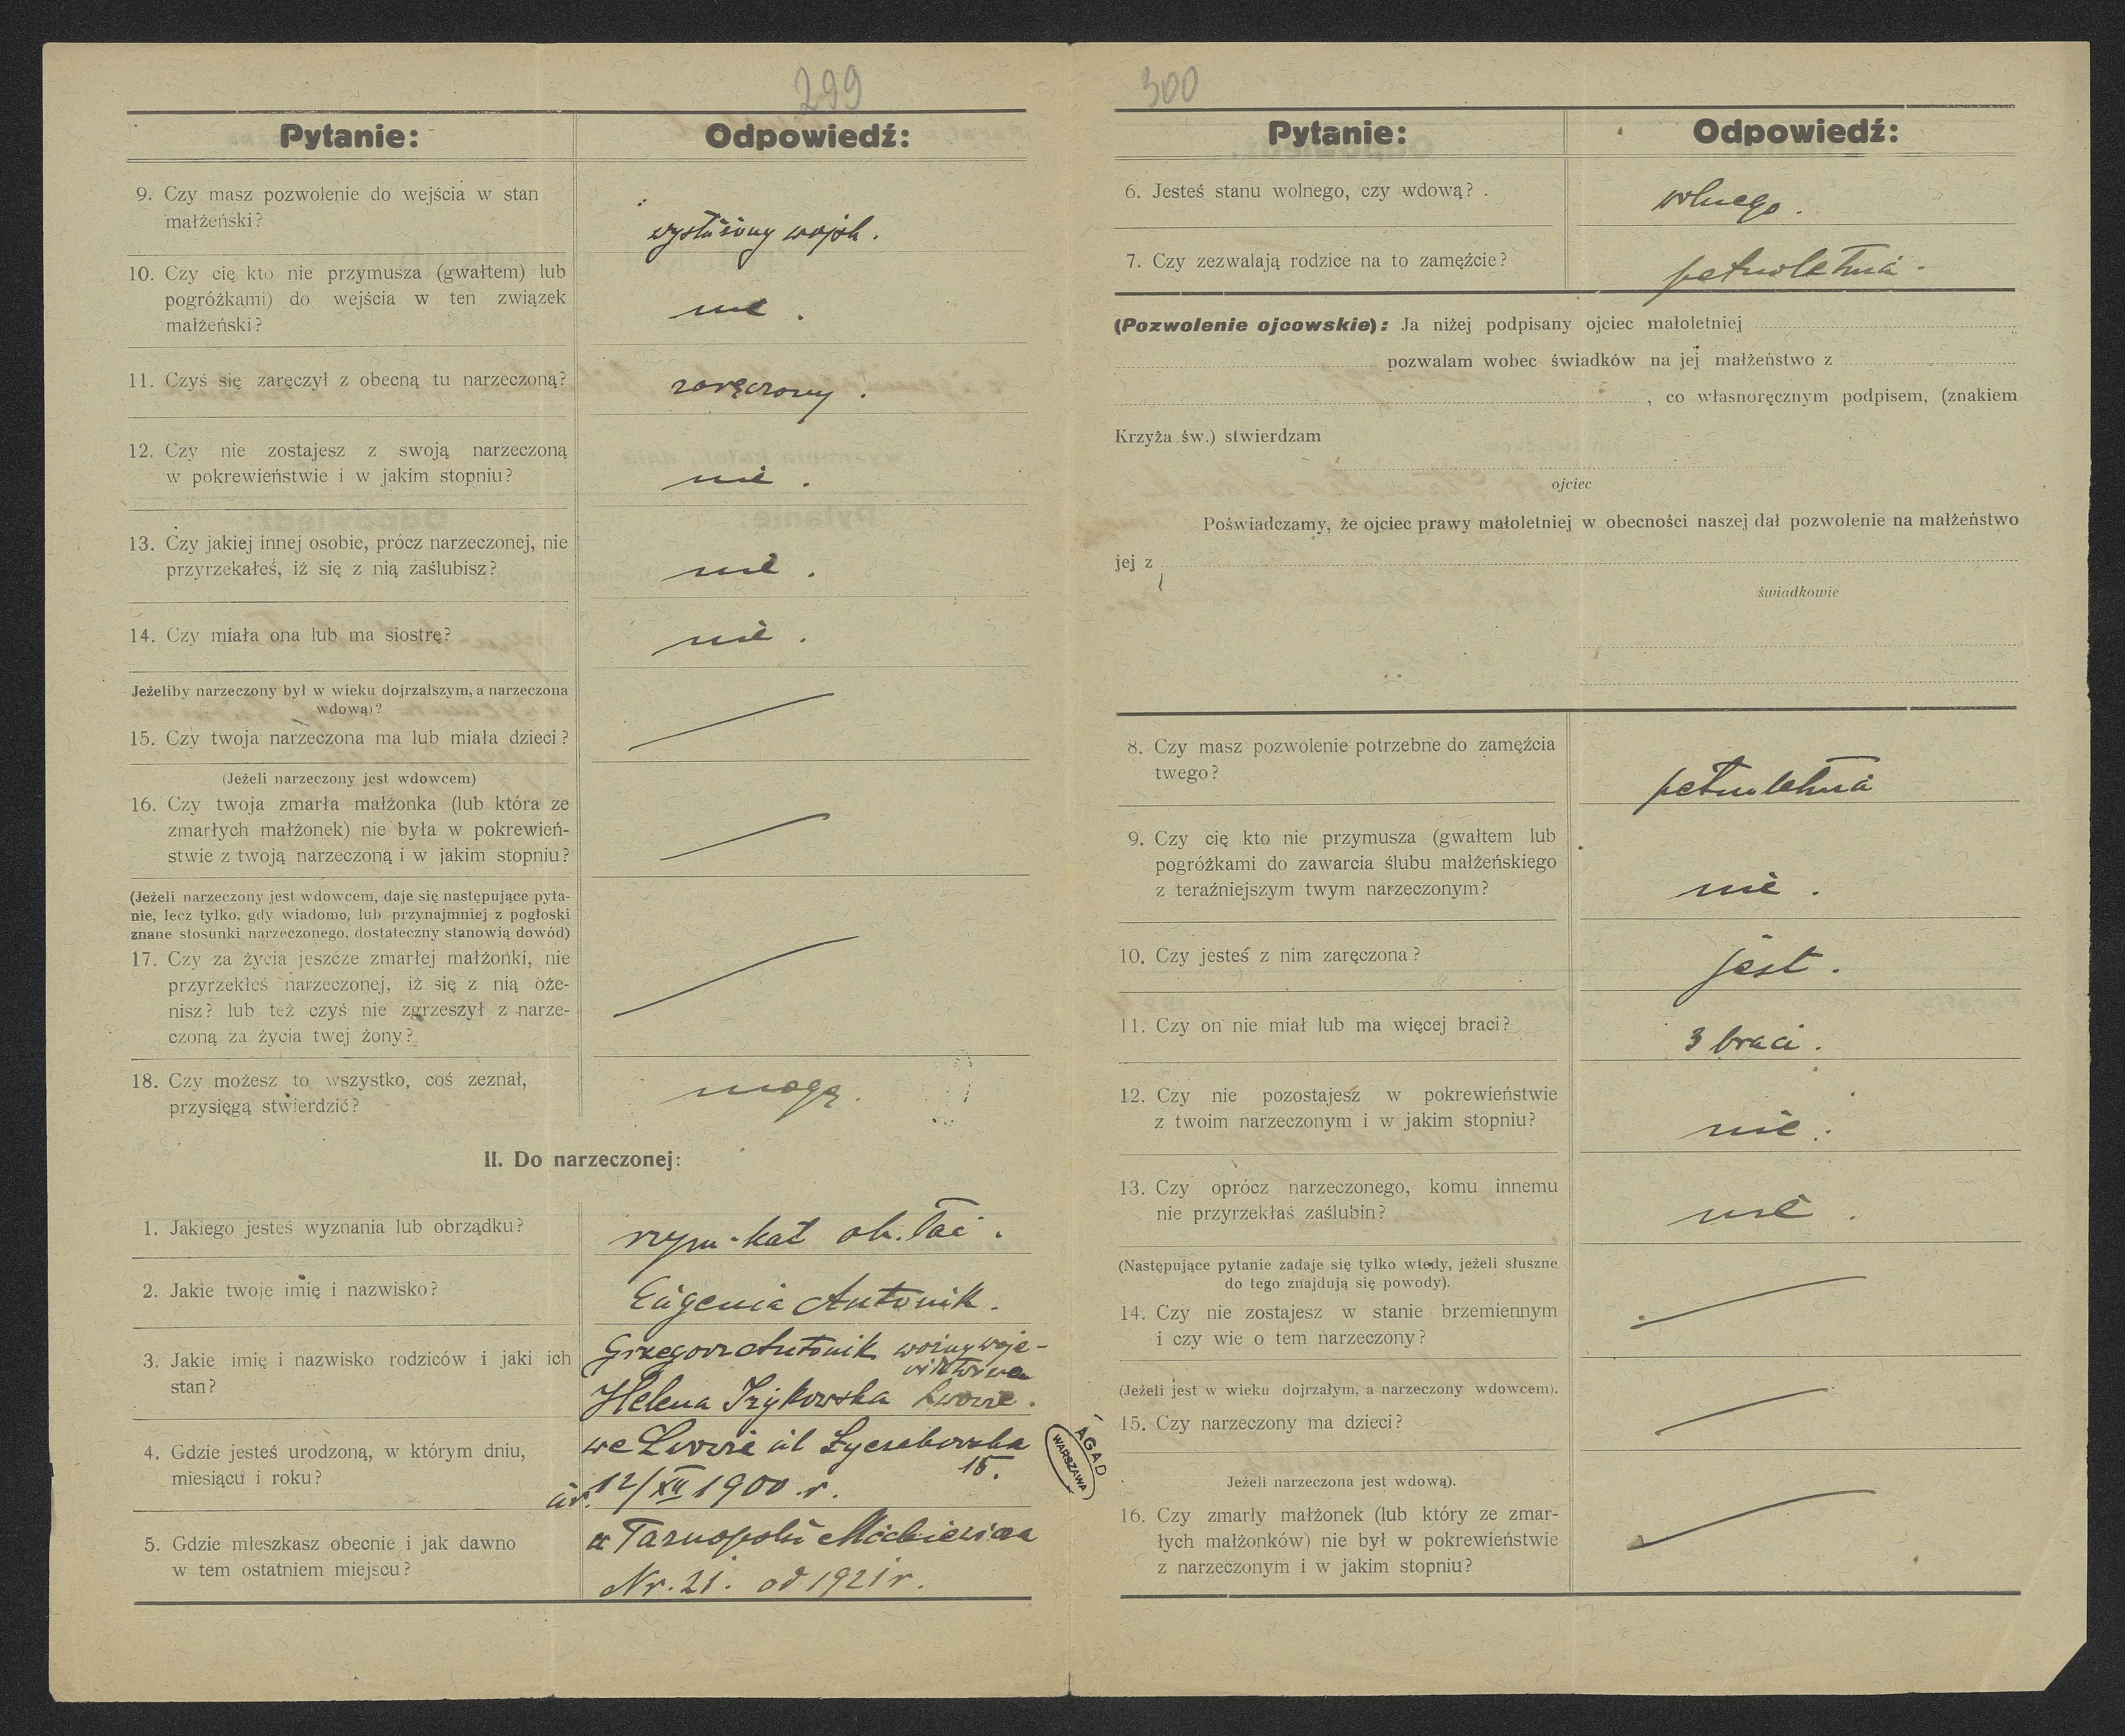 299
Pytanie:
Odpowiedź:
9. Czy masz pozwolenie do wejścia w stan
małżeński?
wysłużony wojsk.
10. Czy cię kto nie przymusza (gwałtem) lub
pogróżkami) do wejścia w ten związek
małżeński?
nie.
11. Czyś się zaręczył z obecną tu narzeczoną?
zaręczony.
12. Czy nie zostajesz z swoją narzeczoną
w pokrewieństwie i w jakim stopniu?
nie.
13. Czy jakiej innej osobie, prócz narzeczonej, nie
przyrzekałeś, iż się z nią zaślubisz?
nie.
14. Czy miała ona lub ma siostrę?
nie.
Jeżeliby narzeczony był w wieku dojrzalszym, a narzeczona
wdową)?
15. Czy twoja narzeczona ma lub miała dzieci?
(Jeżeli narzeczony jest wdowcem)
16. Czy twoja zmarła małżonka (lub która ze
zmarłych małżonek) nie była w pokrewień-
stwie z twoją narzeczoną i w jakim stopniu?
(Jeżeli narzeczony jest wdowcem, daje się następujące pyta-
nie, lecz tylko, gdy wiadomo, lub przynajmniej z pogłoski
znane stosunki narzeczonego, dostateczny stanowią dowód)
17. Czy za życia jeszcze zmarłej małżonki, nie
przyrzekłeś narzeczonej, iż się z nią oże-
nisz? lub też czyś nie zgrzeszył z narze-
czoną za życia twej żony?
18. Czy możesz to wszystko, coś zeznał,
przysięgą stwierdzić?
mogę.
II. Do narzeczonej:
1. Jakiego jesteś wyznania lub obrządku?
rzym-kat ob. łać.
2. Jakie twoje imię i nazwisko?
Eugenia Antonik.
3. Jakie imię i nazwisko rodziców i jaki ich
stan?
Grzegorz Antonik woźny woje-
wództwa
Helena Irzykowska Lwowie.
4. Gdzie jesteś urodzoną, w którym dniu,
miesiącu i roku?
we Lwowie ul Łyczakowska
15.
ur. 12/XII 1900 r.
5. Gdzie mieszkasz obecnie i jak dawno
w tem ostatniem miejscu?
w Tarnopolu Mickiewicza
Nr. 21. od 1921 r.
AGAD
WARSZAWA
300
Pytanie:
Odpowiedź:
6. Jesteś stanu wolnego, czy wdową?
wolnego.
7. Czy zezwalają rodzice na to zamęźcie?
pełnoletnia.
(Pozwolenie ojcowskie): Ja niżej podpisany ojciec małoletniej
pozwalam wobec świadków na jej małżeństwo z
, co własnoręcznym podpisem, (znakiem
Krzyża św.) stwierdzam
ojciec
Poświadczamy, że ojciec prawy małoletniej w obecności naszej dał pozwolenie na małżeństwo
jej z
świadkowie
8. Czy masz pozwolenie potrzebne do zamęźcia
twego?
pełnoletnia
9. Czy cię kto nie przymusza (gwałtem lub
pogróżkami do zawarcia ślubu małżeńskiego
z teraźniejszym twym narzeczonym?
nie.
10. Czy jesteś z nim zaręczona?
jest.
11. Czy on nie miał lub ma więcej braci?
3 braci.
12. Czy nie pozostajesź w pokrewieństwie
z twoim narzeczonym i w jakim stopniu?
nie.
13. Czy oprócz narzeczonego, komu innemu
nie przyrzekłaś zaślubin?
nie.
(Następujące pytanie zadaje się tylko wtedy, jeżeli słuszne
do tego znajdują się powody).
14. Czy nie zostajesz w stanie brzemiennym
i czy wie o tem narzeczony?
(Jeżeli jest w wieku dojrzałym, a narzeczony wdowcem).
15. Czy narzeczony ma dzieci?
Jeżeli narzeczona jest wdową).
16. Czy zmarły małżonek (lub który ze zmar-
łych małżonków) nie był w pokrewieństwie
z narzeczonym i w jakim stopniu?